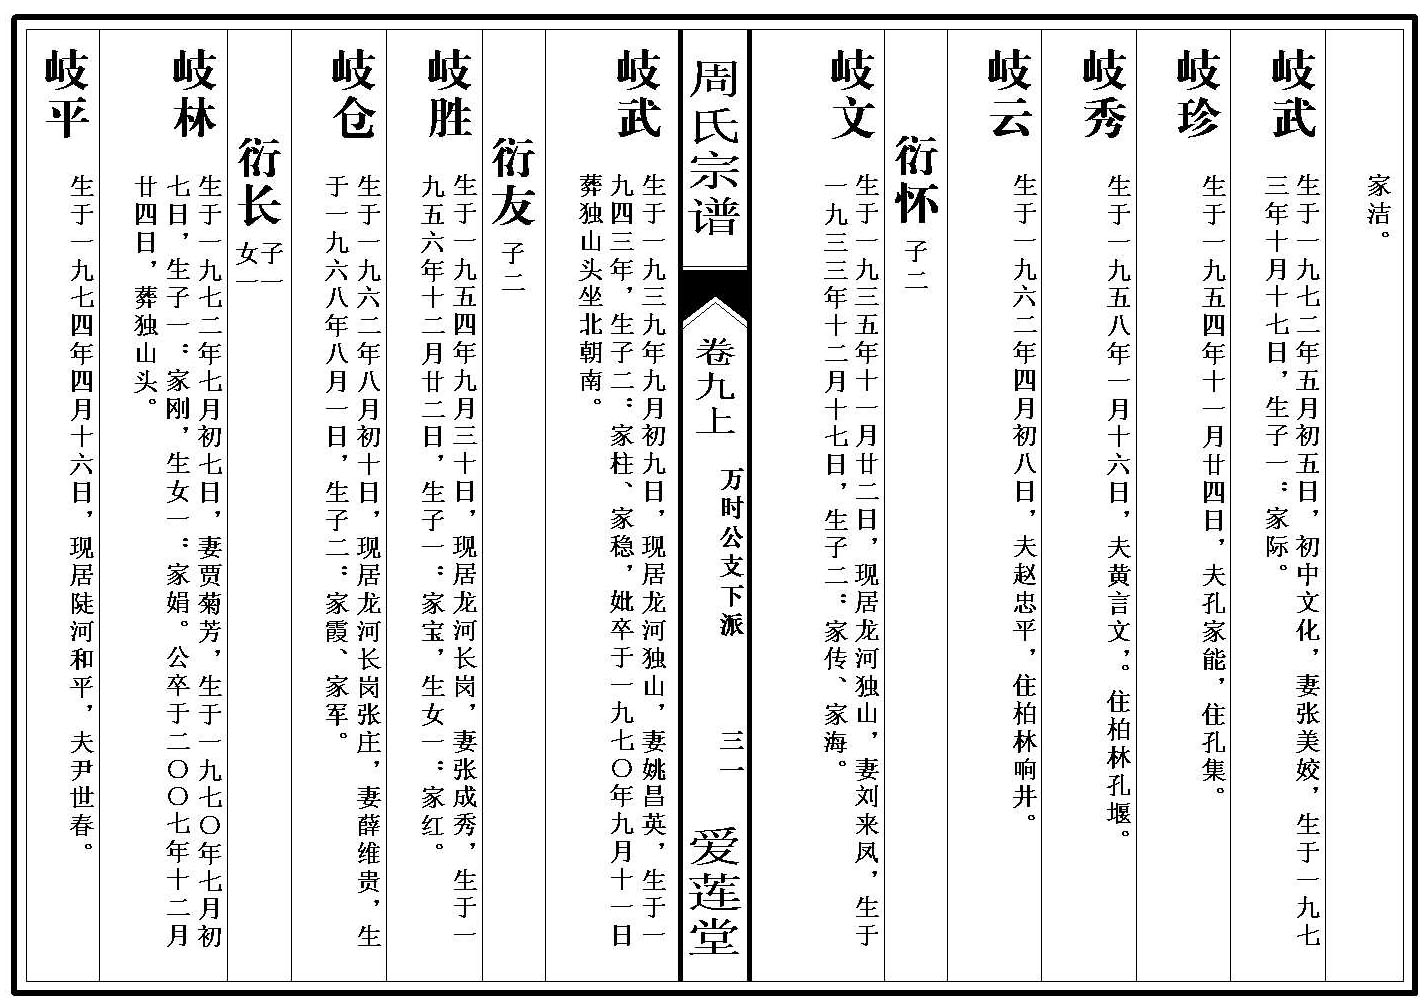 家洁。
岐武
生于一九七二年五月初五日，初中文化，妻张美姣，生于一九七
三年十月十七日，生子一：家际。
岐珍
生于一九五四年十一月廿四日，夫孔家能，住孔集。
岐秀
生于一九五八年一月十六日，夫黄言文，。住柏林孔堰。
岐云
生于一九六二年四月初八日，夫赵忠平，住柏林响井。
衍怀
子二
岐文
生于一九三五年十一月廿二日，现居龙河独山，妻刘来凤，生于
一九三三年十二月十七日，生子二：家传、家海。
周氏宗谱
卷九上
万时公支下派
三一
爱莲堂
岐武
生于一九三九年九月初九日，现居龙河独山，妻姚昌英，生于一
九四三年，生子二：家柱、家稳，妣卒于一九七〇年九月十一日
葬独山头坐北朝南。
衍友
子二
岐胜
生于一九五四年九月三十日，现居龙河长岗，妻张成秀，生于一
九五六年十二月廿二日，生子一：家宝，生女一：家红。
岐仓
生于一九六二年八月初十日，现居龙河长岗张庄，妻薛维贵，生
于一九六八年八月一日，生子二：家霞、家军。
衍长
子一
女一
岐林
生于一九七二年七月初七日，妻贾菊芳，生于一九七〇年七月初
七日，生子一：家刚，生女一：家娟。公卒于二〇〇七年十二月
廿四日，葬独山头。
岐平
生于一九七四年四月十六日，现居陡河和平，夫尹世春。